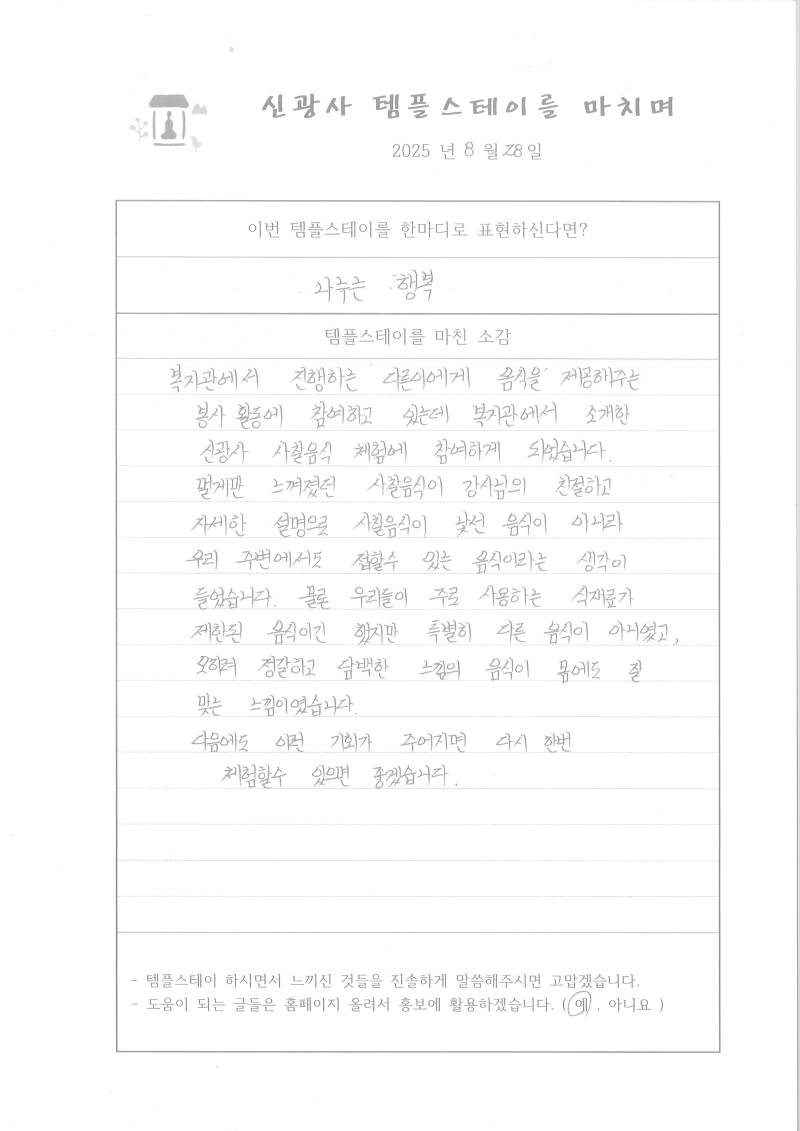 신광사 템플스테이를 마치며
2025 년 8 월 28 일
이번 템플스테이를 한마디로 표현하신다면?
나누는 행복
템플스테이를 마친 소감
복지관에서 진행하는 다른이에게 음식을 제공해주는
봉사 활동에 참여하고 있는데 복지관에서 소개한
신광사 사찰음식 체험에 참여하게 되었습니다.
멀게만 느껴졌던 사찰음식이 강사님의 친절하고
자세한 설명으로 사찰음식이 낯선 음식이 아니라
우리 주변에서도 접할수 있는 음식이라는 생각이
들었습니다. 물론 우리들이 주로 사용하는 식재료가
제한된 음식이긴 했지만 특별히 다른 음식이 아니였고,
오히려 정갈하고 담백한 느낌의 음식이 몸에도 잘
맞는 느낌이였습니다.
다음에도 이런 기회가 주어지면 다시 한번
체험할수 있으면 좋겠습니다.
- 템플스테이 하시면서 느끼신 것들을 진솔하게 말씀해주시면 고맙겠습니다.
- 도움이 되는 글들은 홈페이지 올려서 홍보에 활용하겠습니다. ( 예 , 아니요 )